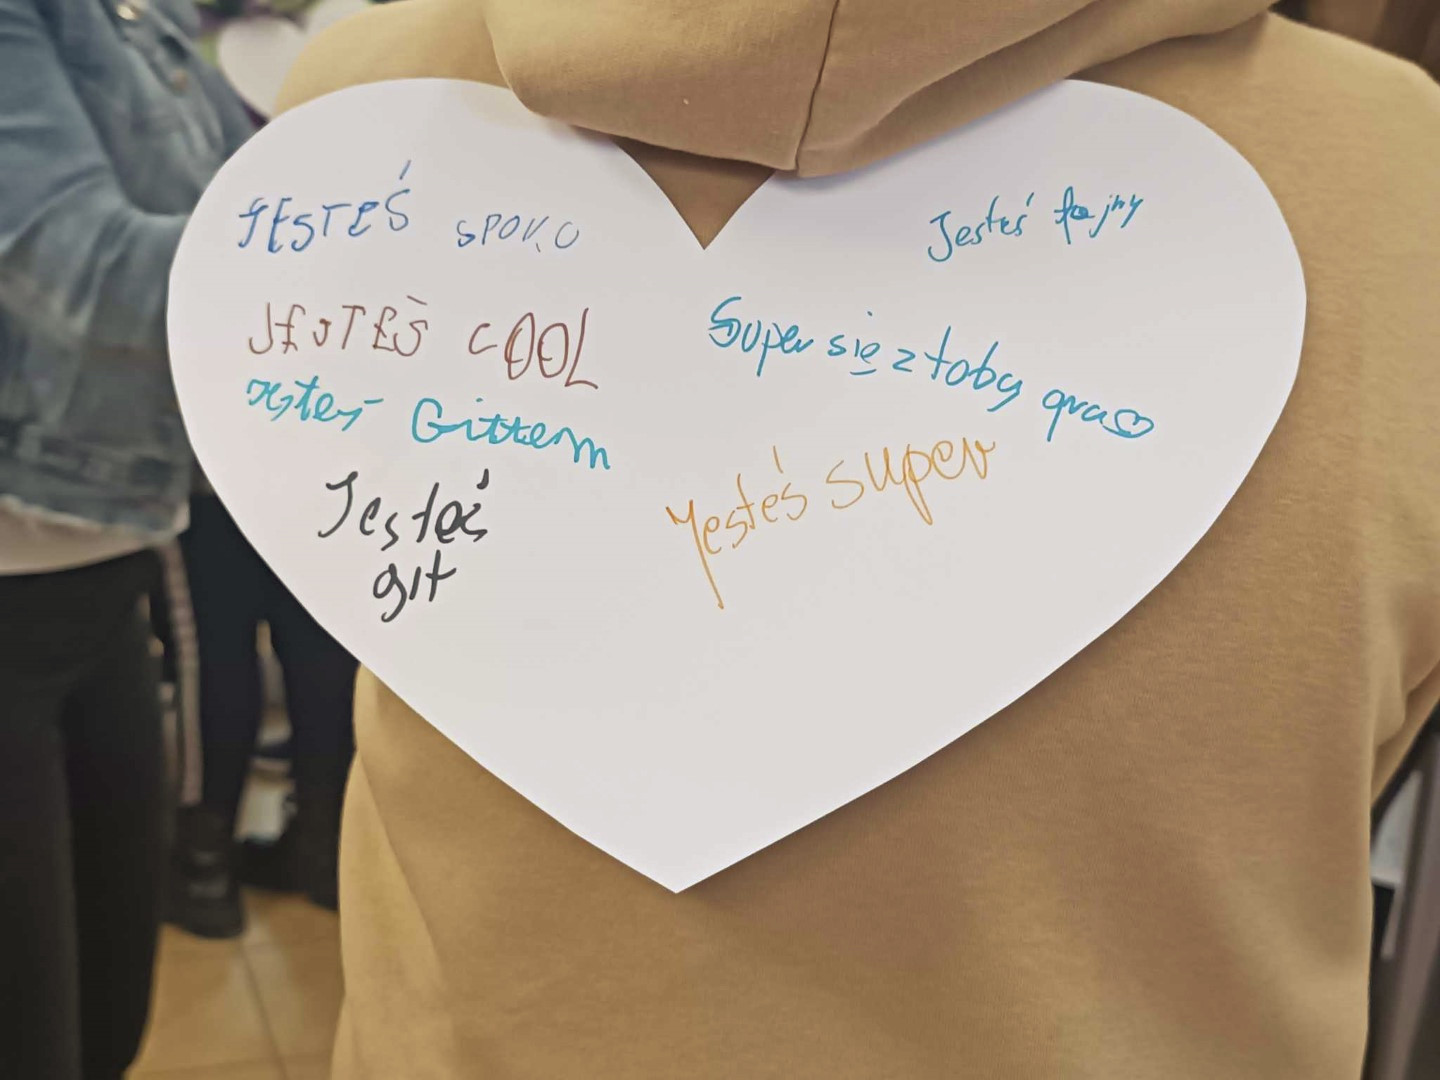 JESTEŚ SPOKO
JESTEŚ COOL
jesteś Gittem
Jesteś
git
Jesteś fajny
Super się z tobą gra
Jesteś super